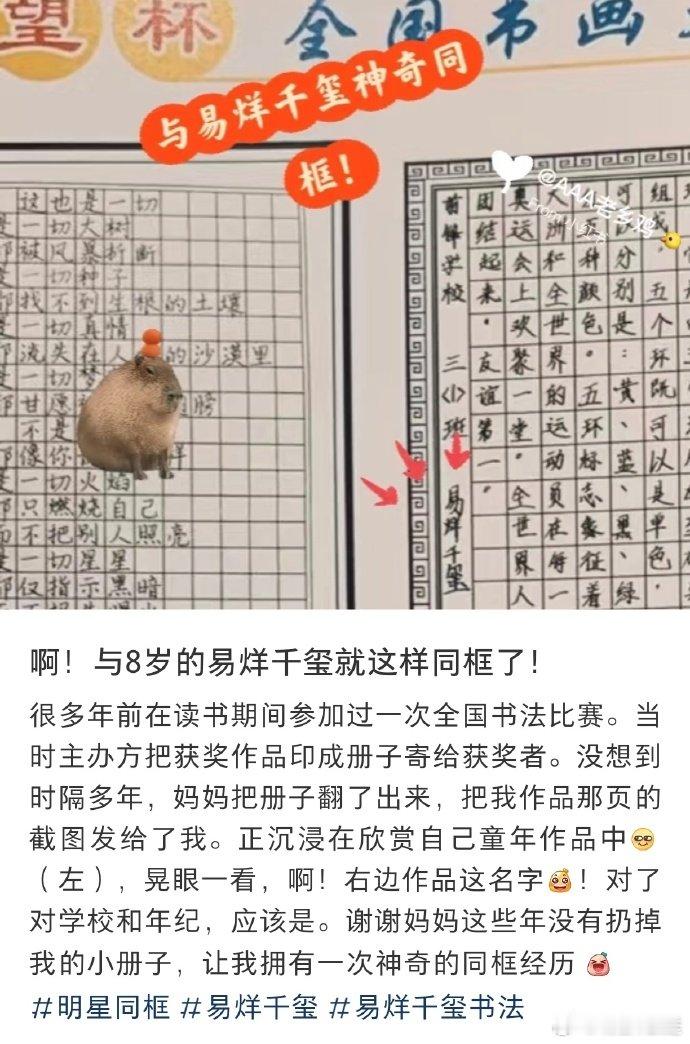 望杯 全国书画
与易烊千玺神奇同
框！
@AAA老乡鸡
From小红书
这也是一切
是一切大树
都被风暴折断
是一切种子
都找不到生根的土壤
是一切真情
都流失在人 的沙漠里
是一切梦
都甘愿 翅膀
不是
都像你 样
是一切火焰
都只燃烧自己
而不把别人照亮
是一切星星
都仅指示黑暗
组
可以是单色
五个环
分别是：黄、蓝、黑、绿、
五种颜色。五环标志象征着
大洲和全世界的运动员在每一
奥运会上欢聚一堂。全世界人
团结起来。友谊第一。
前锋学校 三〈1〉班 易烊千玺
啊！与8岁的易烊千玺就这样同框了！
很多年前在读书期间参加过一次全国书法比赛。当
时主办方把获奖作品印成册子寄给获奖者。没想到
时隔多年，妈妈把册子翻了出来，把我作品那页的
截图发给了我。正沉浸在欣赏自己童年作品中
（左），晃眼一看，啊！右边作品这名字！对了
对学校和年纪，应该是。谢谢妈妈这些年没有扔掉
我的小册子，让我拥有一次神奇的同框经历
#明星同框 #易烊千玺 #易烊千玺书法